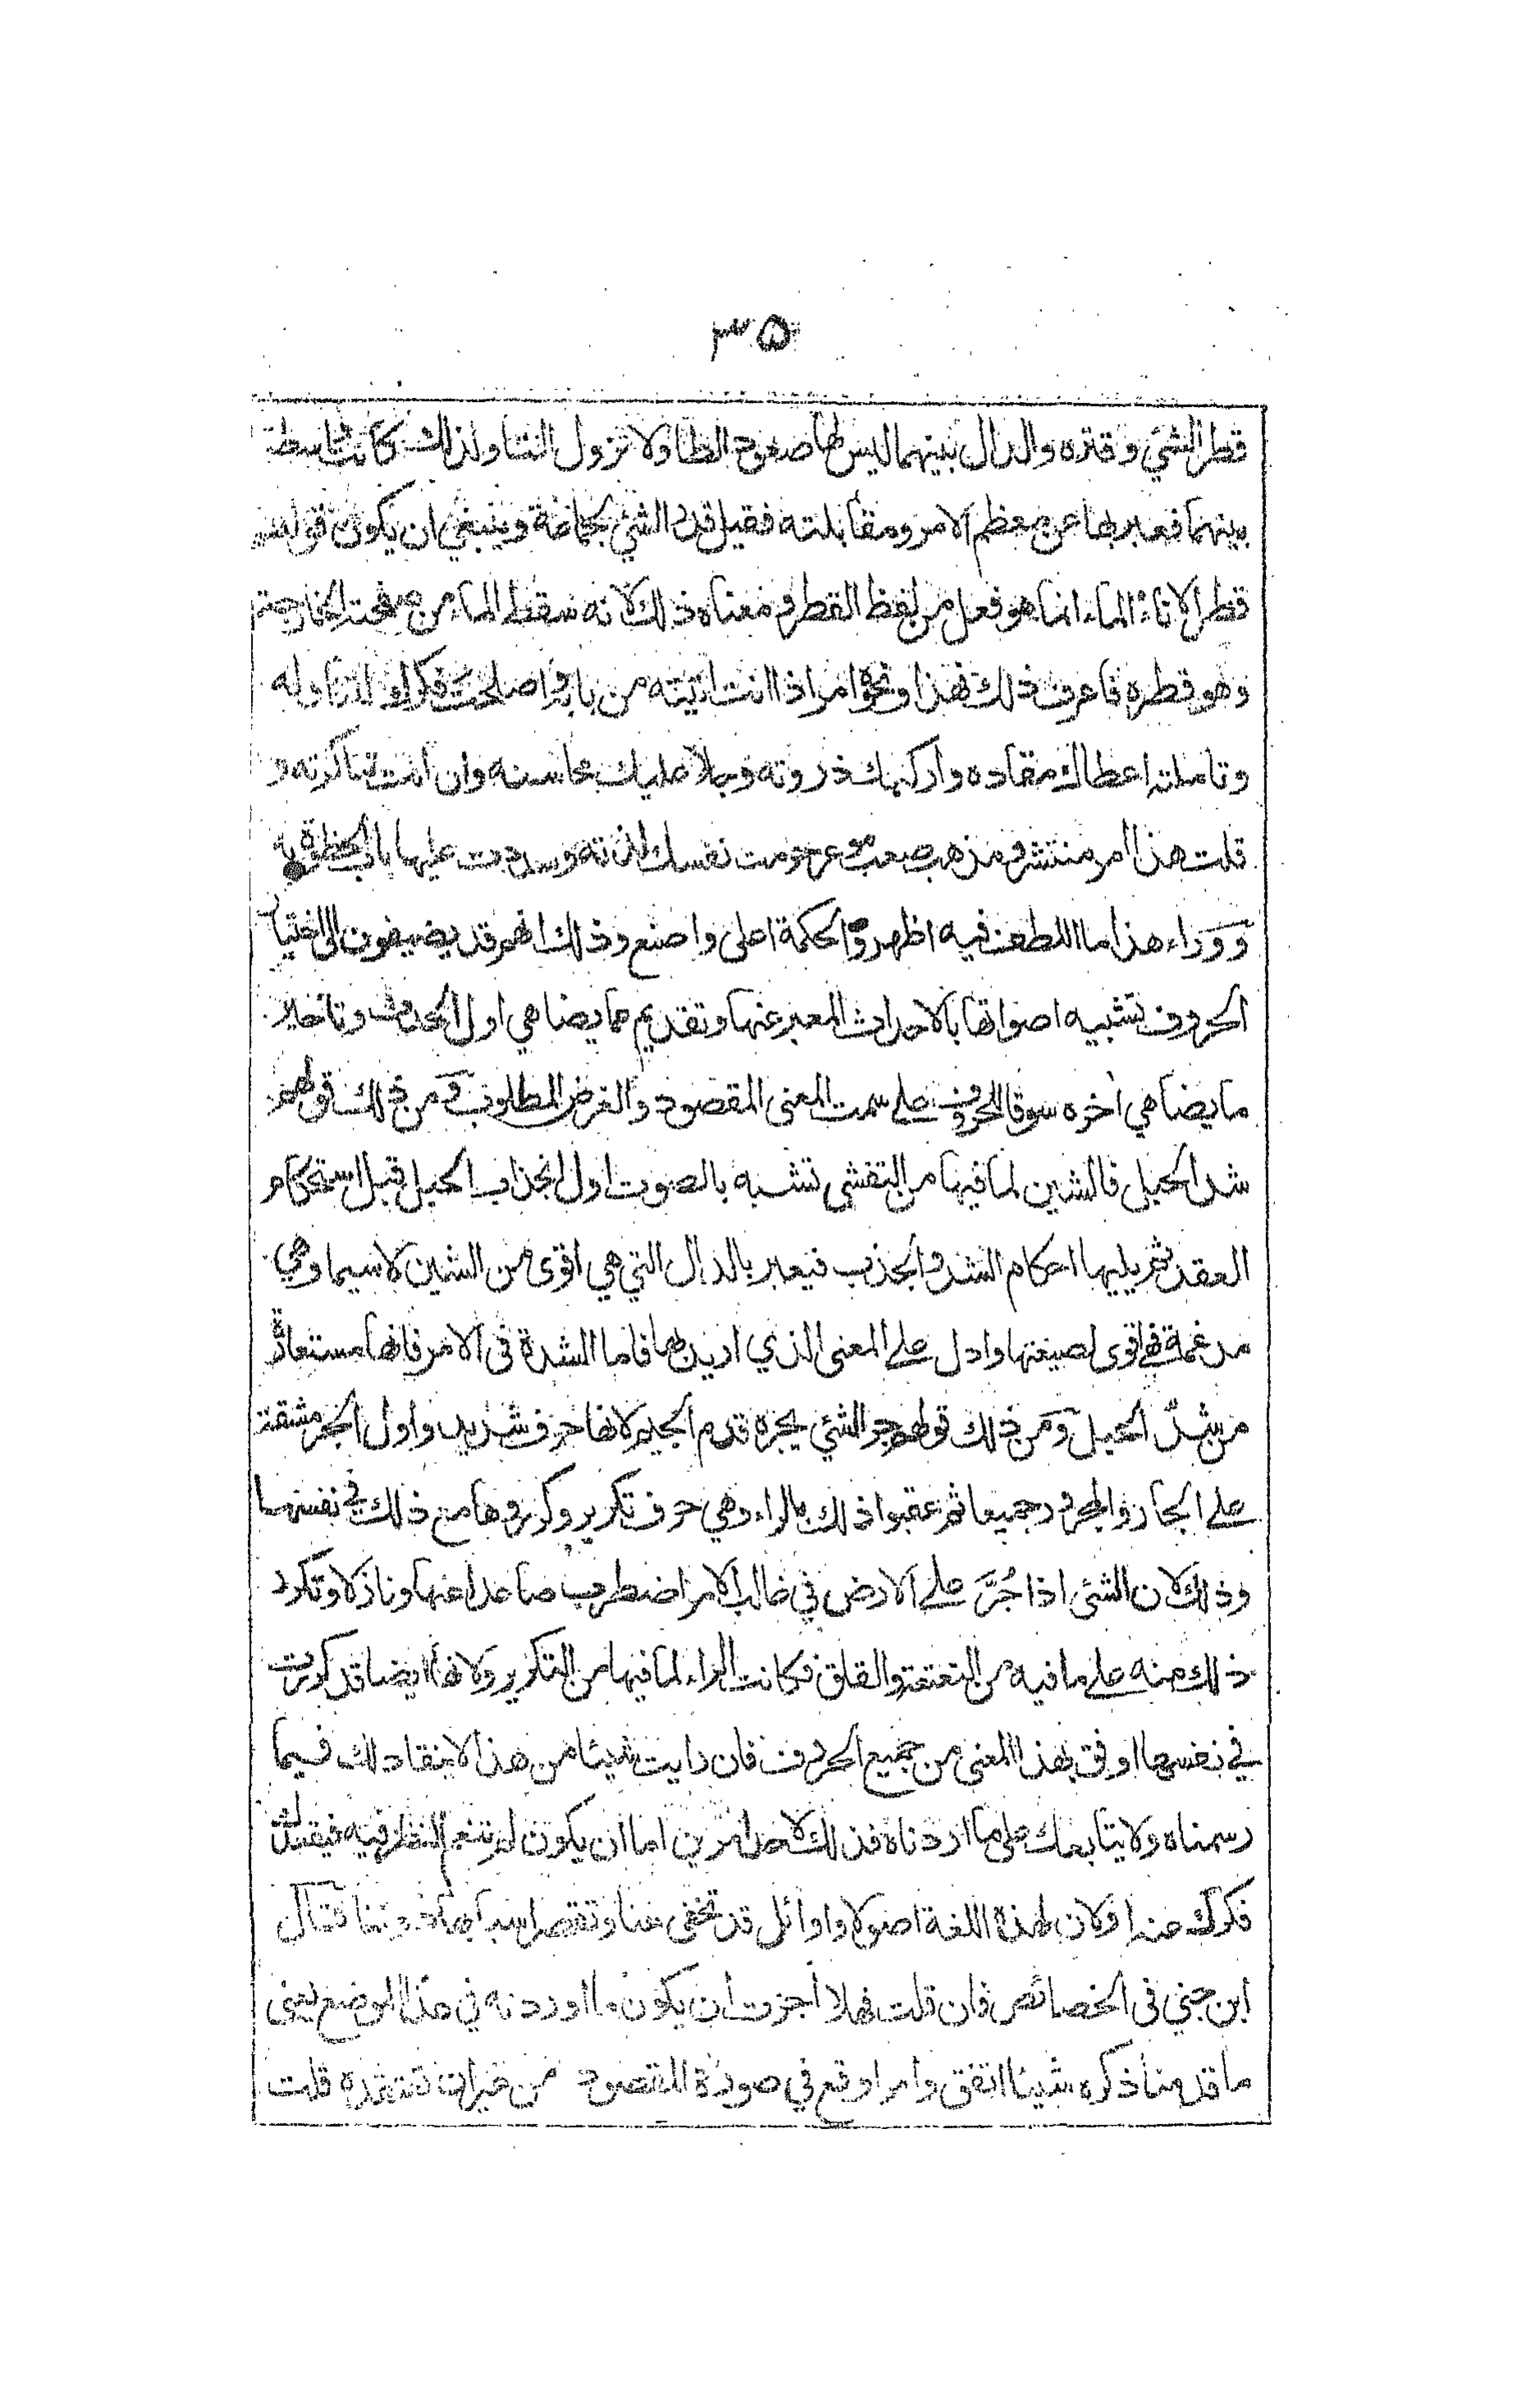 ٣٥
قطر الشئ وقتره والدال بينهما ليس لها صعود الطا ولا نزول التا ولذلك كانت واسطة
بينهما فعبر بها عن معظم الامر ومقابلته فقيل قدر الشئ لجماعة وينبغي ان يكون قولهم
قطر الاناءُ الماء انما هو فعل من لفظ القطر و معناه ذلك لانه سقط الماء من صفحته الخارجة
وهو قطره فاعرف ذلك فهذا ونحوه امر اذا انت اتيته من بابه واصلحت فكرك لتناوله
وتاملته اعطاك مقاده واركبك ذروته وجلا عليك محاسنه وان انت تناكرته و
قلت هذا امر منتشر ومذهب صعب موعر حرمت نفسك لذته وسددت عليها باب الحظوة به
ووراء هذا ما اللطف فيه اظهر والحكمة اعلى واصنع وذلك انهم قد يضيفون الى اختيا
الحروف تشبيه اصواتها بالاحداث المعبر عنها وتقديم ما يضاهي اول الحدث وتاخير
ما يضاهي أخره سوقا للحروف على سمت المعنى المقصود والغرض المطلوب ومن ذلك قولهم
شد الحبل فالشين لما فيها من التفشي تشبه بالصوت اول انجذاب الحبل قبل استحكام
العقد ثم يليها احكام الشد والجذب فيعبر بالدال التي هي اقوى من الشين لاسيما وهي
مدغمة فهي اقوى لصيغتها وادل على المعنى الذي اريد بها فاما الشدة في الامر فانها مستعارة
من شدّ الحبل ومن ذلك قولهم جر الشئ يجره قدم الجيم لانها حرف شديد واول الجر مشقة
على الجار والمجرور جميعا ثم عقبوا ذلك بالراء وهي حرف تكرير وكرروها مع ذلك في نفسها
وذلك لان الشئ اذا جُرَّ على الارض في غالب الامر اضطرب صاعدا عنها ونازلا وتكرر
ذلك منه على ما فيه من التعتعة والقلق فكانت الراء لما فيها من التكرير ولانها ايضا قد كررت
في نفسها اوفق بهذا المعنى من جميع الحروف فان رايت شيئا من هذا لا ينقاد لك فيما
رسمناه ولا يتابعك على ما اردناه فذلك لاحد امرين اما ان يكون لم تنعم النظر فيه فيقعد بك
فكرك عنه او لان لهذه اللغة اصولا واوائل قد تخفى عنا وتقصر اسبابها دوننا فقال
ابن جني في الخصائص فان قلت فهلا أجزت ان يكون ما اوردته في هذا الموضع يعني
ما قدمنا ذكره شيئا اتفق وامرا وقع في صورة المقصود من غير ان تعتقده قلت